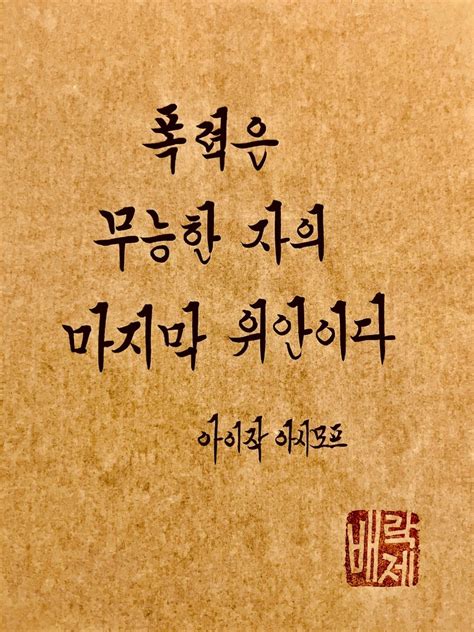 폭력은
무능한 자의
마지막 위안이다
아이작 아시모프
배락제